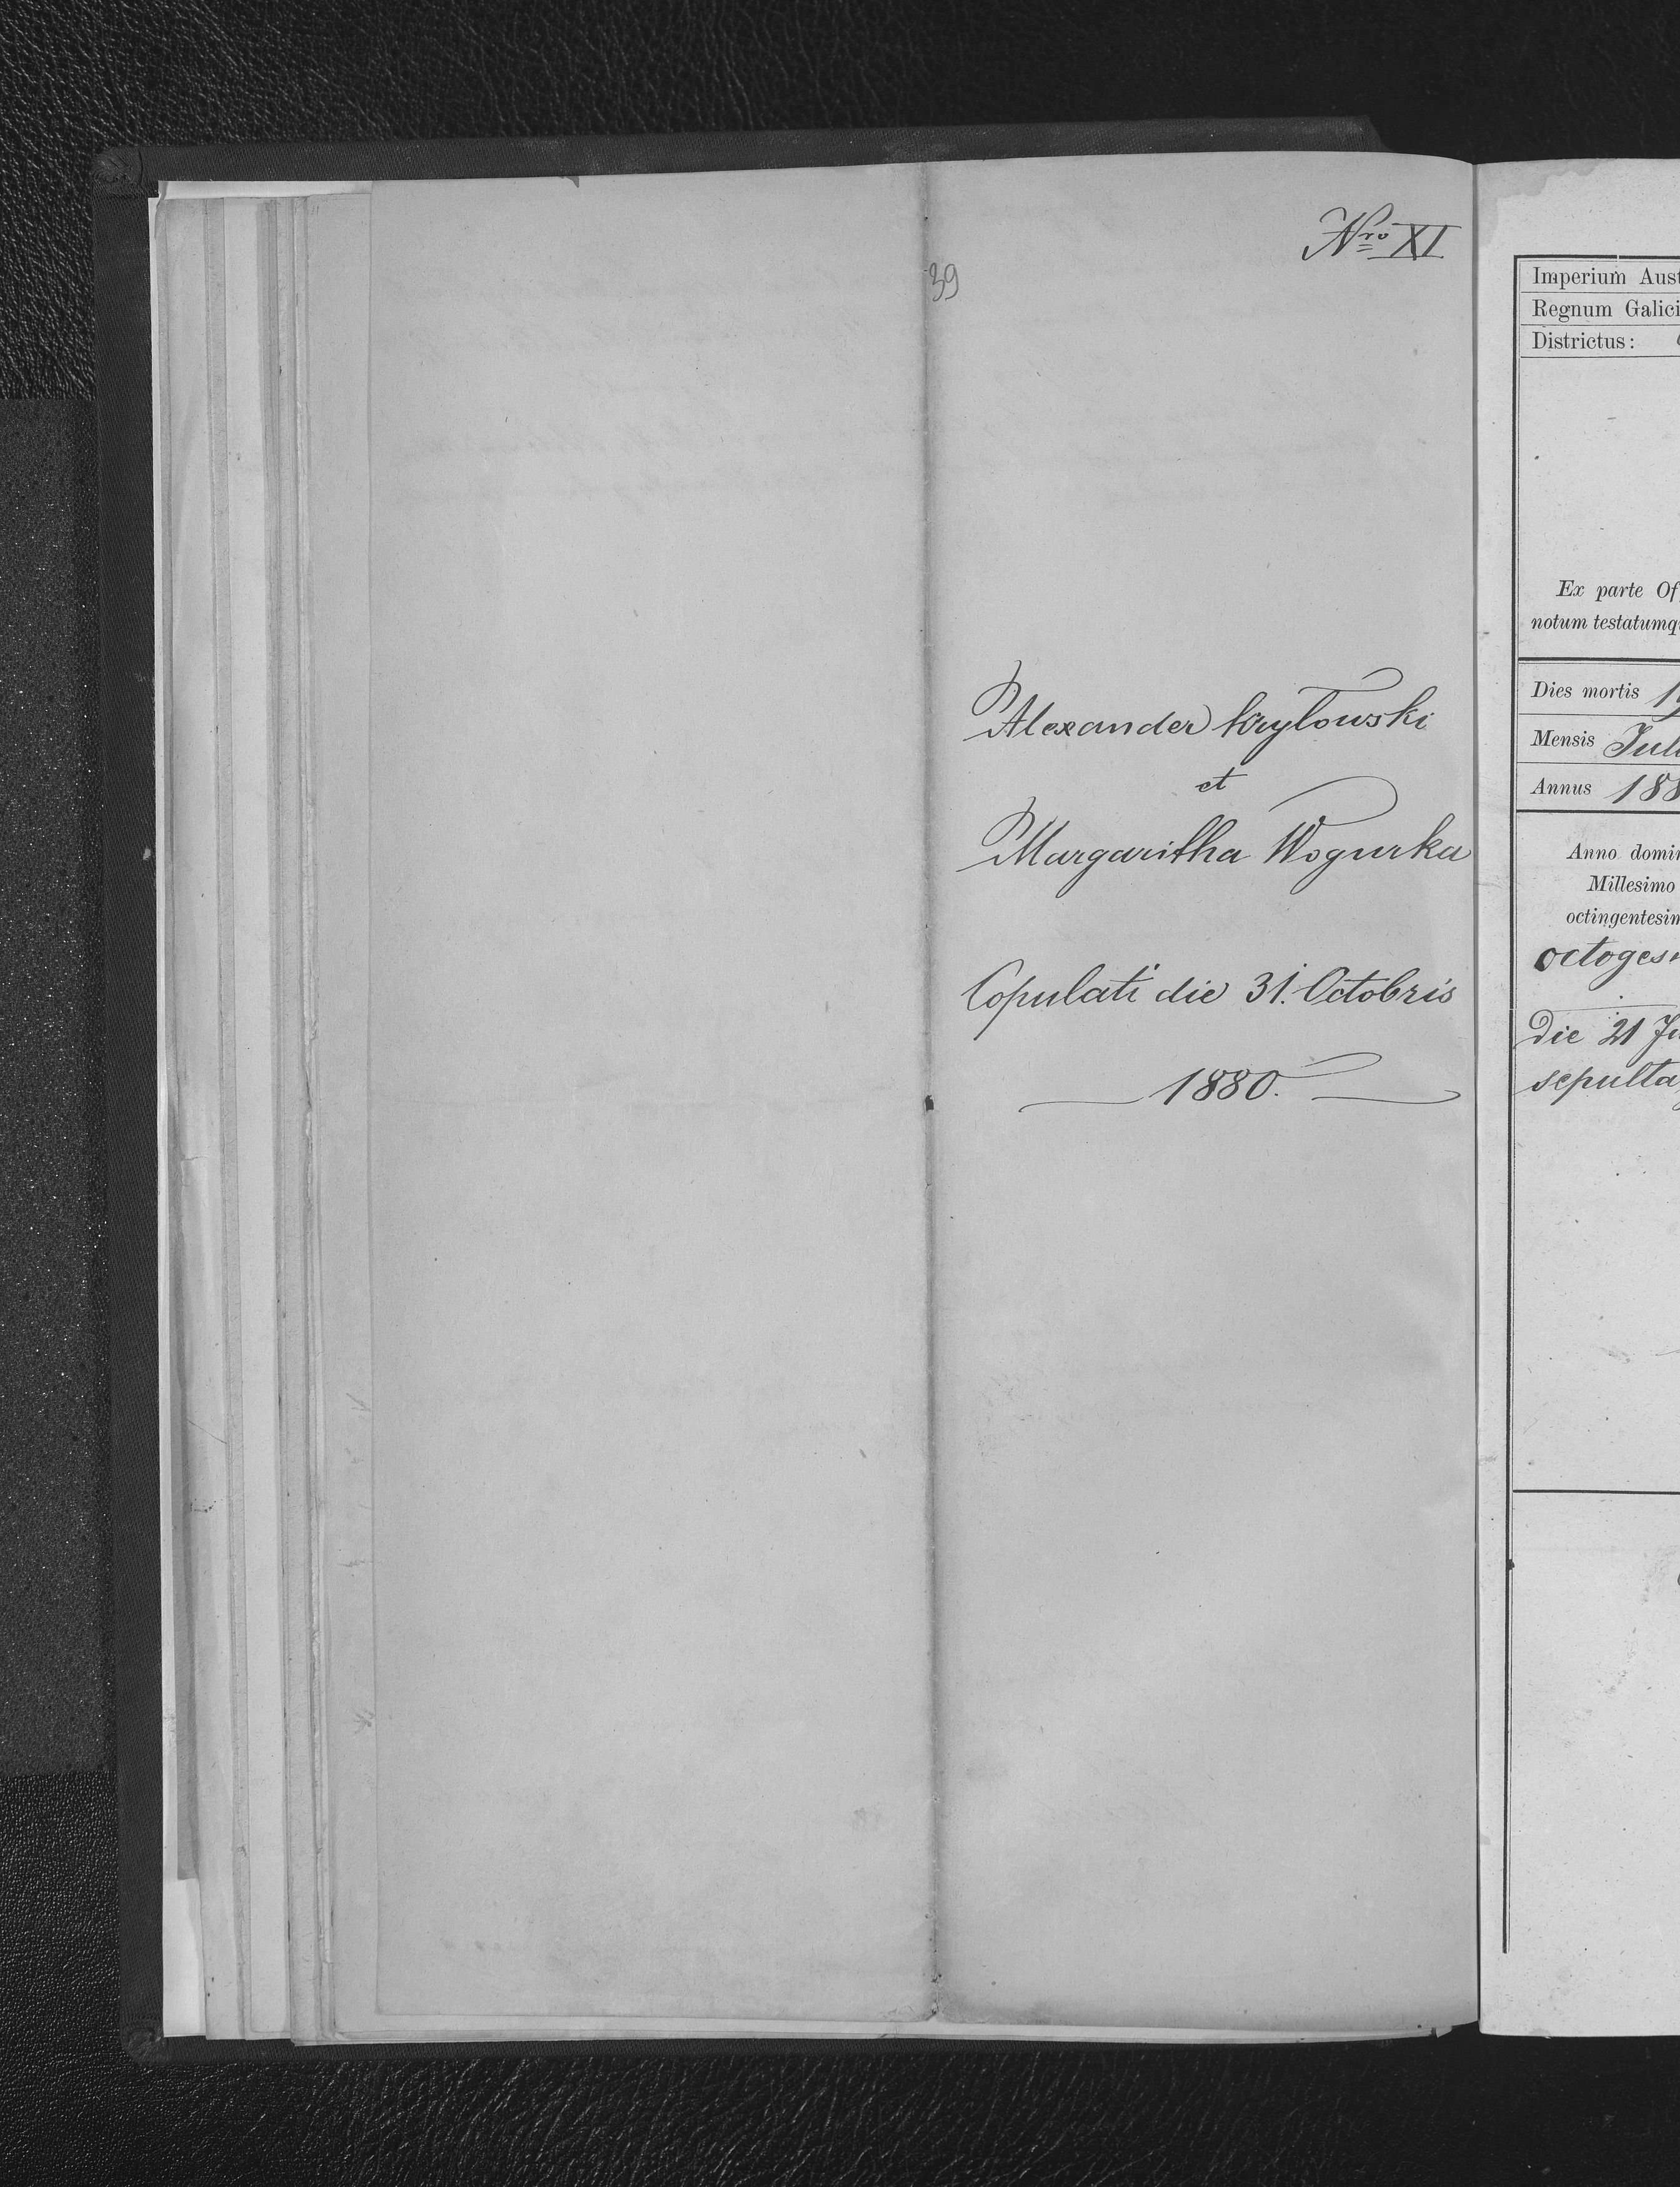 Nro XI
39
Alexander Kryłowski
et
Margaritha Wogurka
Copulati die 31. Octobris
1880.
Imperium Aust
Regnum Galici
Districtus:
Ex parte Of
notum testatumq
Dies mortis 19
Mensis Juli
Annus 188
Anno domin
Millesimo
octingentesim
octoges
Die 21 Ju
sepulta